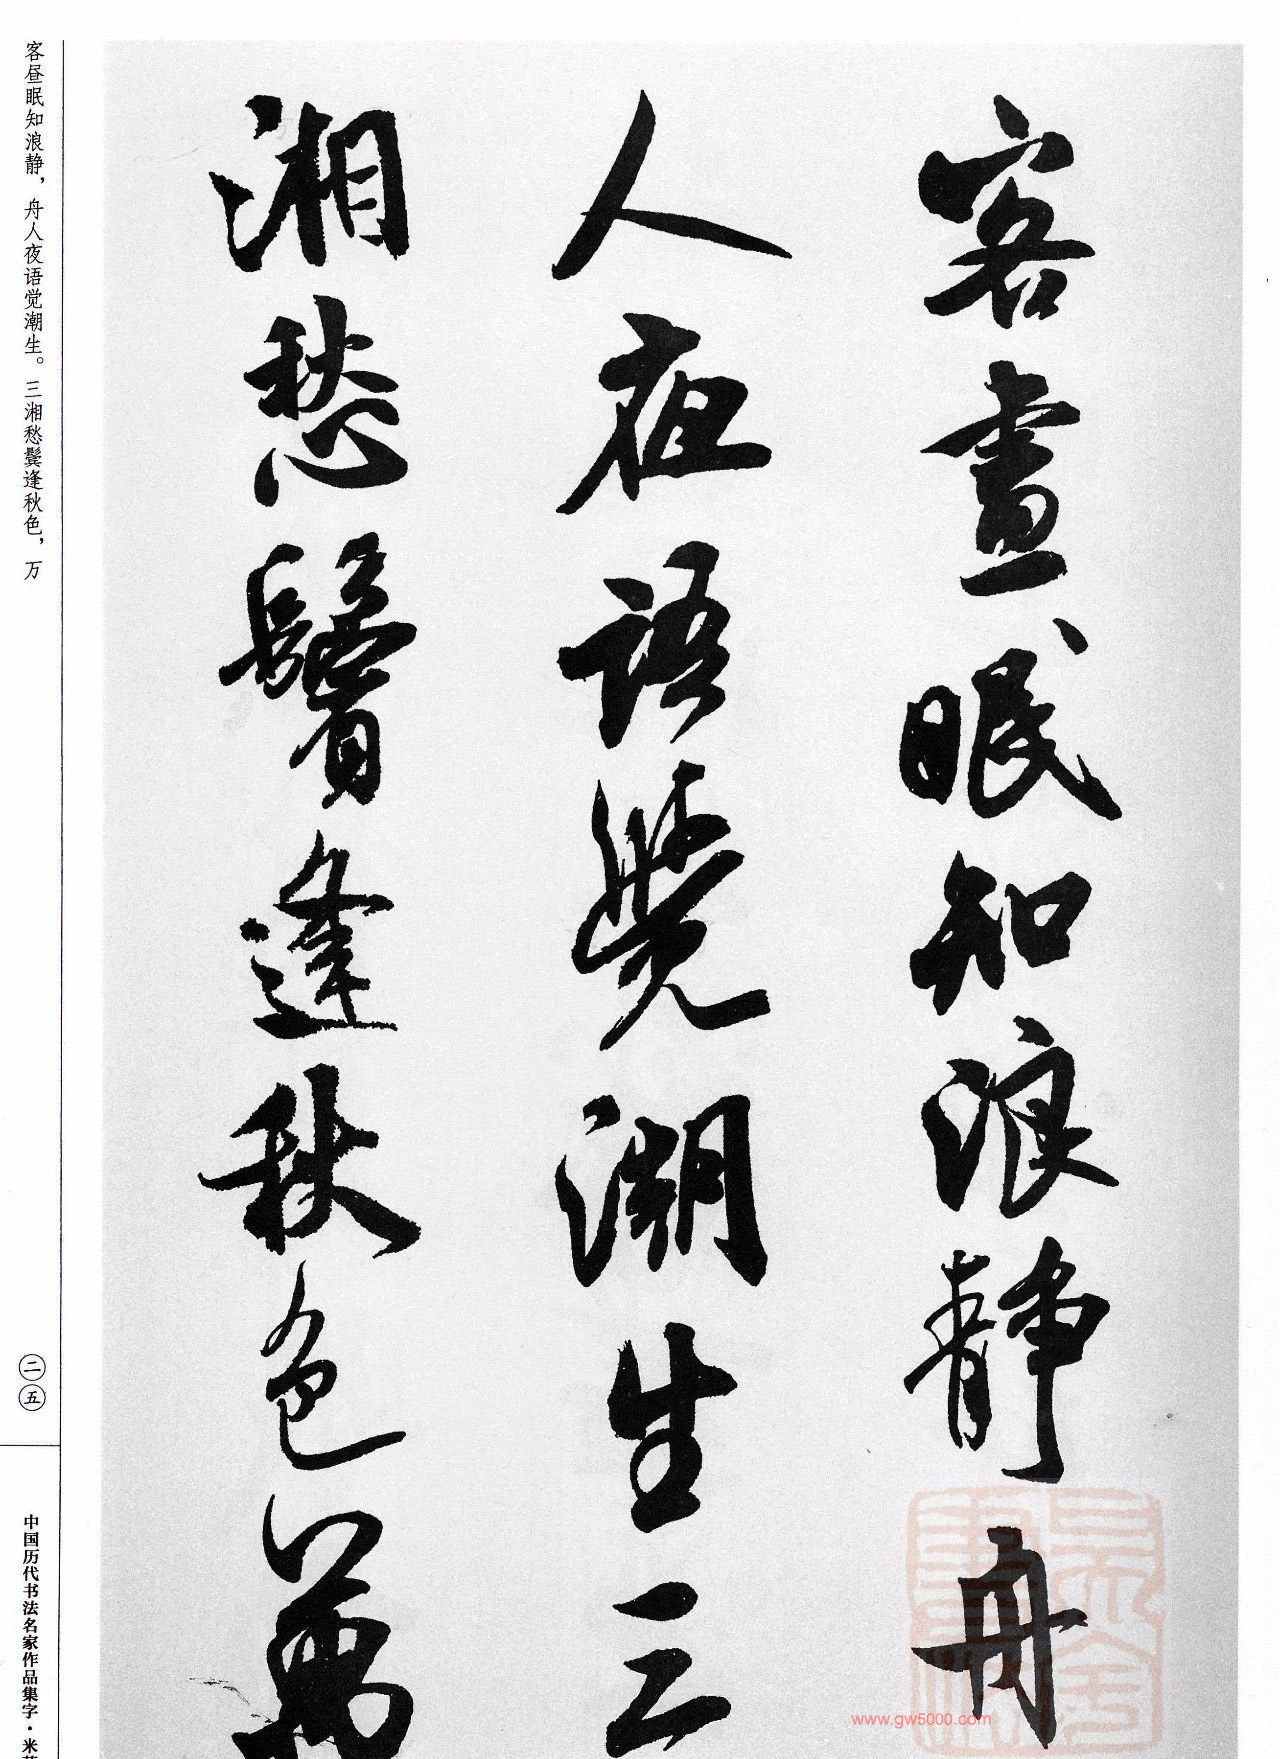 客晝眠知浪静舟
人夜語覺潮生三
湘愁鬢逢秋色萬
客昼眠知浪静，舟人夜语觉潮生。三湘愁鬓逢秋色，万
二五
中国历代书法名家作品集字·米
www.gw5000.com